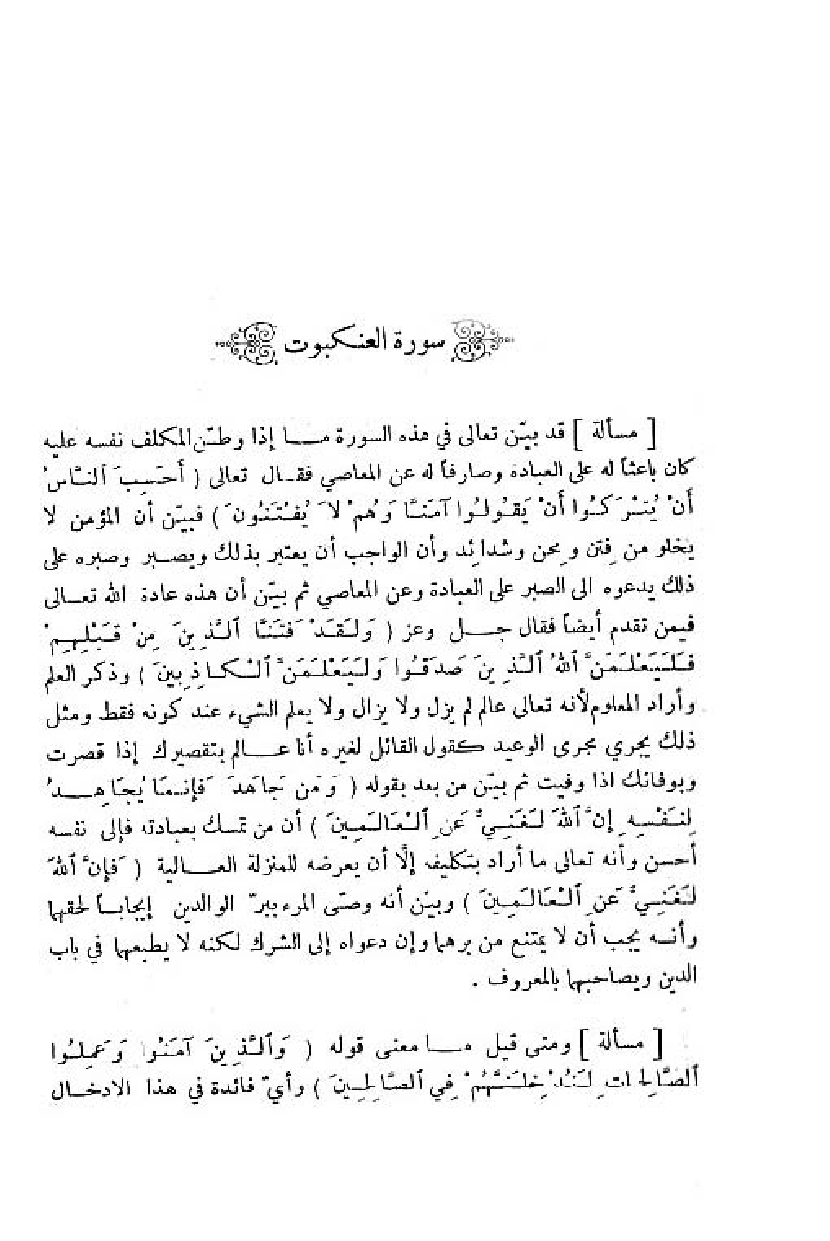 سورة العنكبوت
[ مسألة ] قد بيّن تعالى في هذه السورة ما إذا وطّن المكلف نفسه عليه
كان باعثاً له على العبادة وصارفاً له عن المعاصي فقال تعالى ( أَحَسِبَ ٱلنَّاسُ
أَنْ يُتْرَكُوا أَنْ يَقُولُوا آمَنَّا وَهُمْ لاَ يُفْتَنُونَ ) فبيّن أن المؤمن لا
يخلو من فتن ومحن وشدائد وأن الواجب أن يعتبر بذلك ويصبر وصبره على
ذلك يدعوه الى الصبر على العبادة وعن المعاصي ثم بيّن أن هذه عادة الله تعالى
فيمن تقدم أيضاً فقال جل وعز ( وَلَقَدْ فَتَنَّا ٱلَّذِينَ مِنْ قَبْلِهِمْ
فَلَيَعْلَمَنَّ ٱللهُ ٱلَّذِينَ صَدَقُوا وَلَيَعْلَمَنَّ ٱلْكَاذِبِينَ ) وذكر العلم
وأراد المعلوم لأنه تعالى عالم لم يزل ولا يزال ولا يعلم الشيء عند كونه فقط ومثل
ذلك يجري مجرى الوعيد كقول القائل لغيره أنا عالم بتقصيرك إذا قصرت
وبوفائك اذا وفيت ثم بيّن من بعد بقوله ( وَمَن جَاهَدَ فَإِنَّمَا يُجَاهِدُ
لِنَفْسِهِ إِنَّ ٱللهَ لَغَنِيٌّ عَنِ ٱلْعَالَمِينَ ) أن من تمسك بعبادته فإلى نفسه
أحسن وأنه تعالى ما أراد بتكليف إلَّا أن يعرضه للمنزلة العالية ( فَإِنَّ ٱللهَ
لَغَنِيٌّ عَنِ ٱلْعَالَمِينَ ) وبيّن أنه وصّى المرء ببرّ الوالدين إيجاباً لحقهما
وأنه يجب أن لا يمتنع من برهما وإن دعواه إلى الشرك لكنه لا يطيعهما في باب
الدين ويصاحبهما بالمعروف .
[ مسألة ] ومتى قيل ما معنى قوله ( وَٱلَّذِينَ آمَنُوا وَعَمِلُوا
ٱلصَّالِحَاتِ لَنُدْخِلَنَّهُمْ فِي ٱلصَّالِحِينَ ) وأيّ فائدة في هذا الادخال